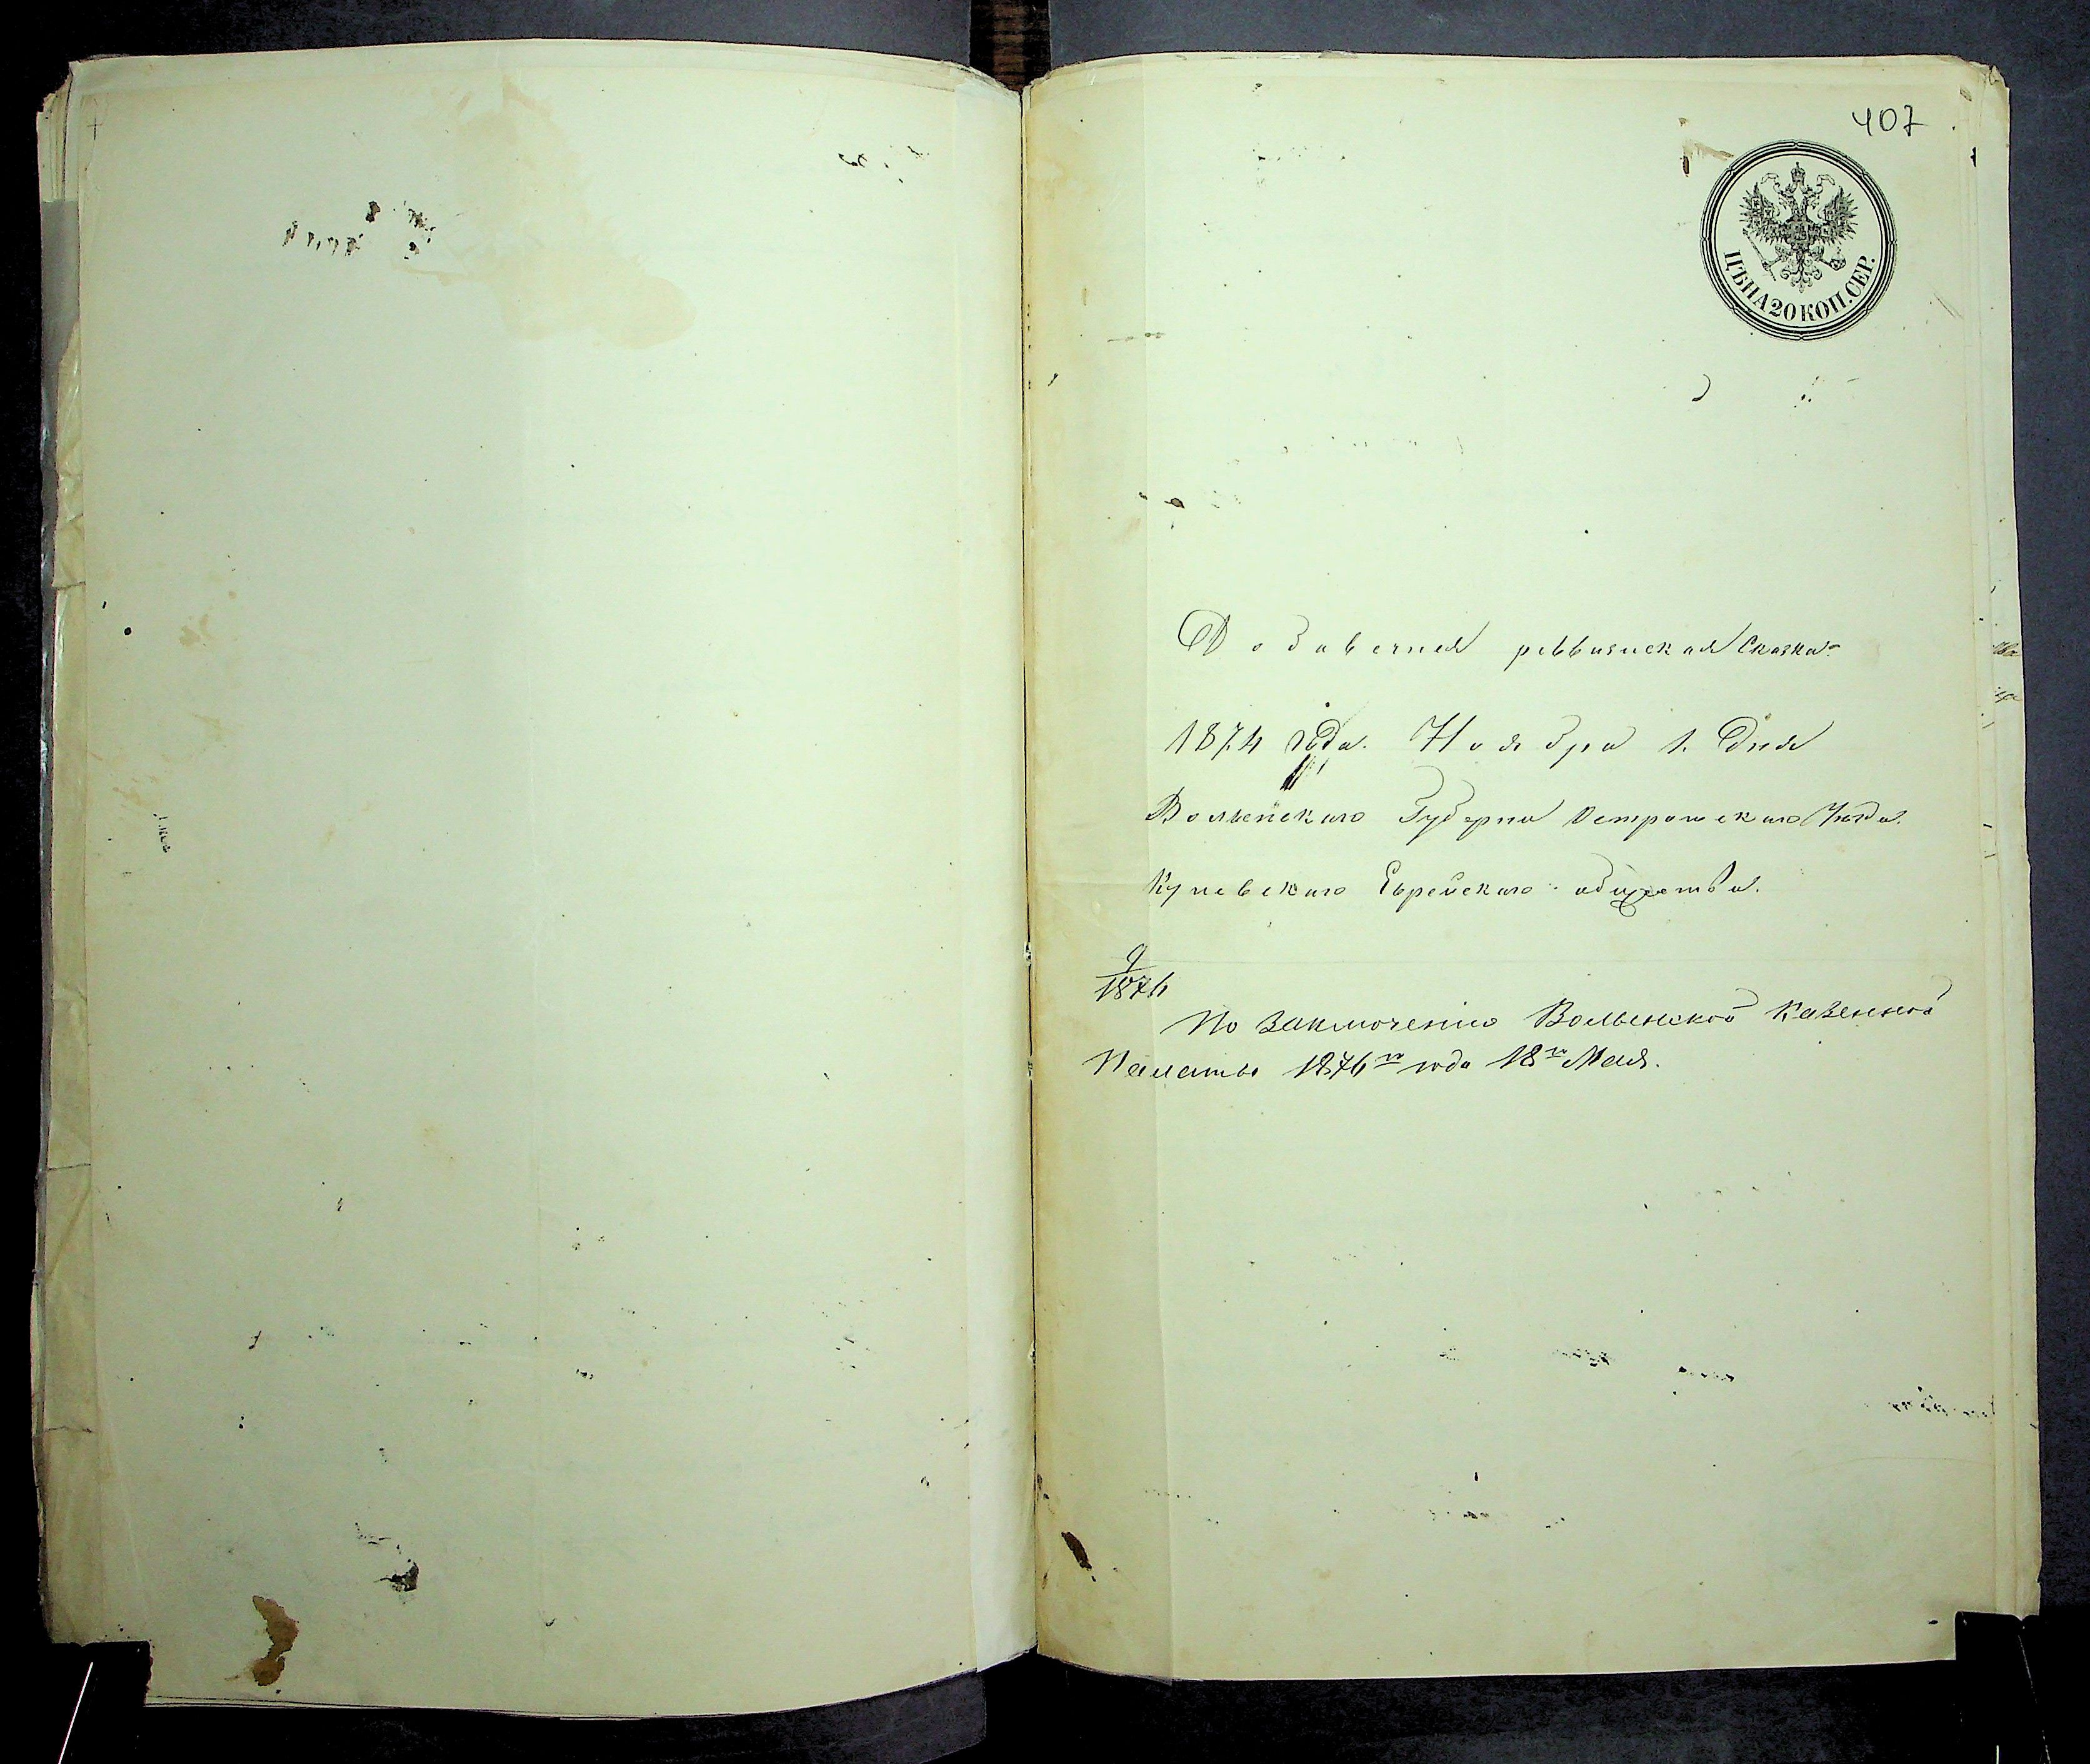 407
ЦѢНА 20 КОП. СЕР.
Добавочная реввизская Сказка
1874 года. Ноября 1. Дня
Волынского Губерни Острожского Уезда
Куневского Еврейского общества.
9
1876
По заключенію Волынской Казенной
Палаты 1876го года 18го Мая.